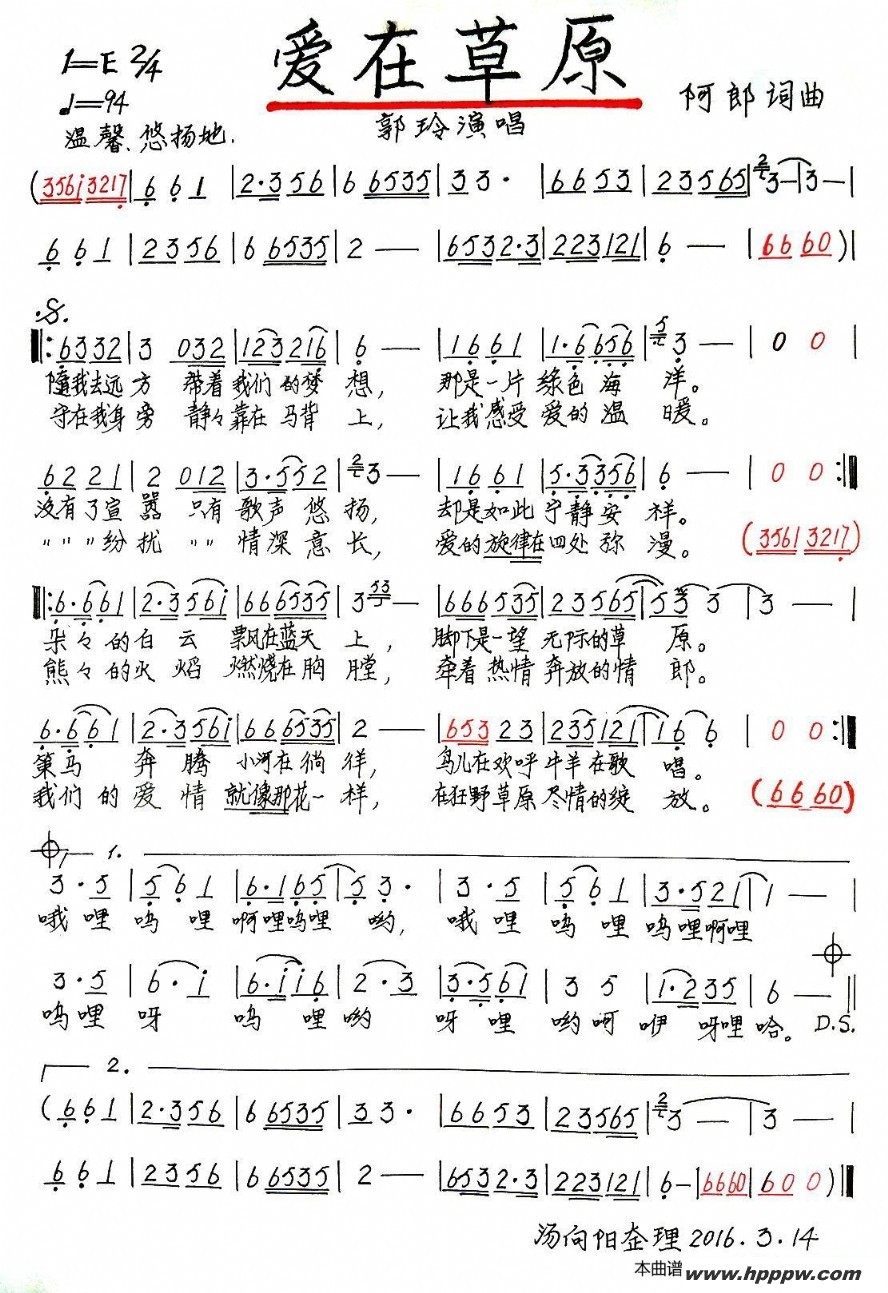 爱在草原
1=E 2/4
♩=94
温馨、悠扬地.
郭玲演唱
阿郎词曲
(3561 3217 | 6 6 1 | 2·356 | 6 6535 | 3 3· | 6653 | 23565 | 3— | 3— |
6 6 1 | 2356 | 6 6535 | 2 — | 6532·3 | 223121 | 6 — | 66 60 )|
𝄋
‖: 6332 | 3 032 | 123216 | 6 — | 16 61 | 1·6656 | 3 — | 0 0 |
随我去远方 带着我们的梦想, 那是一片绿色海洋。
守在我身旁 静々靠在马背上, 让我感受爱的温暖。
6221 | 2 012 | 3·552 | 3 — | 16 61 | 5·3356 | 6 — | 0 0 :‖
没有了宣嚣 只有歌声悠扬, 却是如此宁静安祥。
〃〃〃纷扰 〃〃情深意长, 爱的旋律在四处弥漫。 (3561 3217)
‖: 6·661 | 2·3561 | 666535 | 3 — | 666535 | 23565 | 5 3 3 | 3 — |
朵々的白云 飘在蓝天上, 脚下是一望无际的草原。
熊々的火焰 燃烧在胸膛, 牵着热情奔放的情郎。
6·661 | 2·3561 | 666535 | 2 — | 653 23 | 235121 | 16 6 | 0 0 :‖
策马奔腾 小河在徜徉, 鸟儿在欢呼牛羊在歌唱。
我们的爱情 就像那花一样, 在狂野草原尽情的绽放。 (66 60)
1.
3·5 | 5 6 1 | 6·165 | 5 3· | 3·5 | 5 6 1 | 3·521 | 1 — |
哦哩呜哩啊哩呜哩哟, 哦哩呜哩呜哩啊哩
3·5 | 6·1 | 6·116 | 2·3 | 3·561 | 3 5 | 1·235 | 6 — ‖
呜哩呀呜哩哟呀哩哟呵咿呀哩哈。 D.S.
2.
(6 6 1 | 2·356 | 6 6535 | 3 3· | 6653 | 23565 | 3 — | 3 — |
6 6 1 | 2356 | 6 6535 | 2 — | 6532·3 | 223121 | 6 - | 6660 | 600 )‖
汤向阳整理 2016.3.14
本曲谱 www.hpppw.com